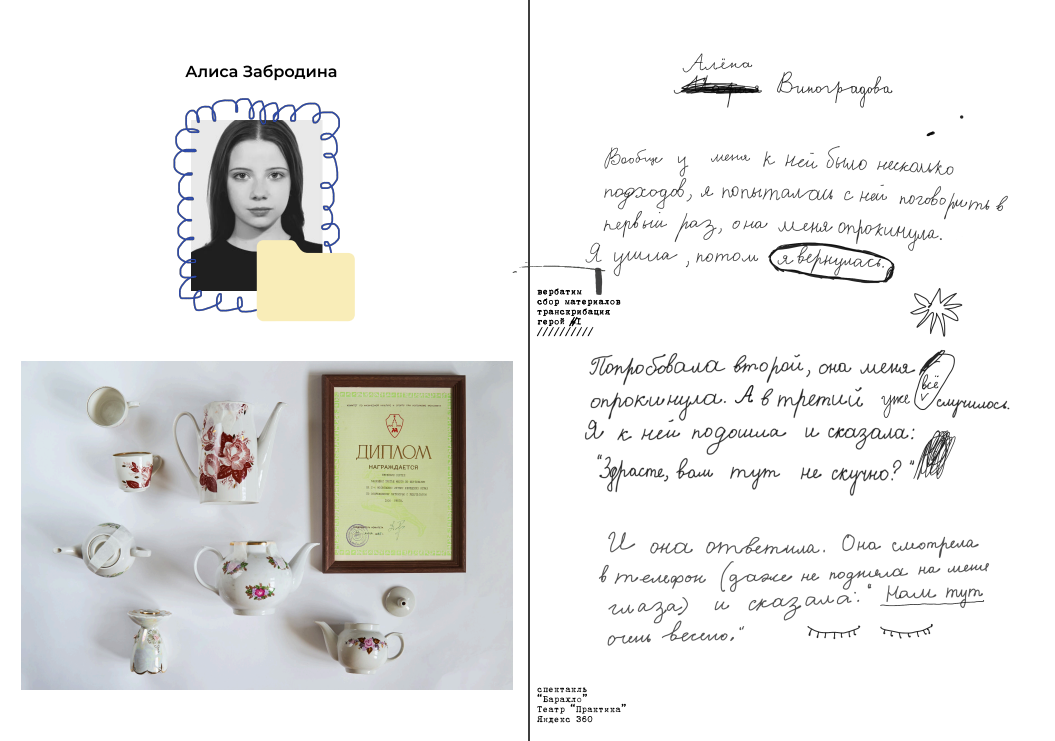 Алиса Забродина
ДИПЛОМ
НАГРАЖДАЕТСЯ
Алёна
Виноградова
Вообще у меня к ней было несколько
подходов, я попыталась с ней поговорить в
первый раз, она меня опрокинула.
Я ушла, потом я вернулась.
вербатим
сбор материалов
транскрибация
герой №1
Попробовала второй, она меня
опрокинула. А в третий уже всё случилось.
Я к ней подошла и сказала:
"Здрасте, вам тут не скучно?"
И она ответила. Она смотрела
в телефон (даже не подняла на меня
глаза) и сказала: "Нам тут
очень весело."
спектакль
"Барахло"
Театр "Практика"
Яндекс 360